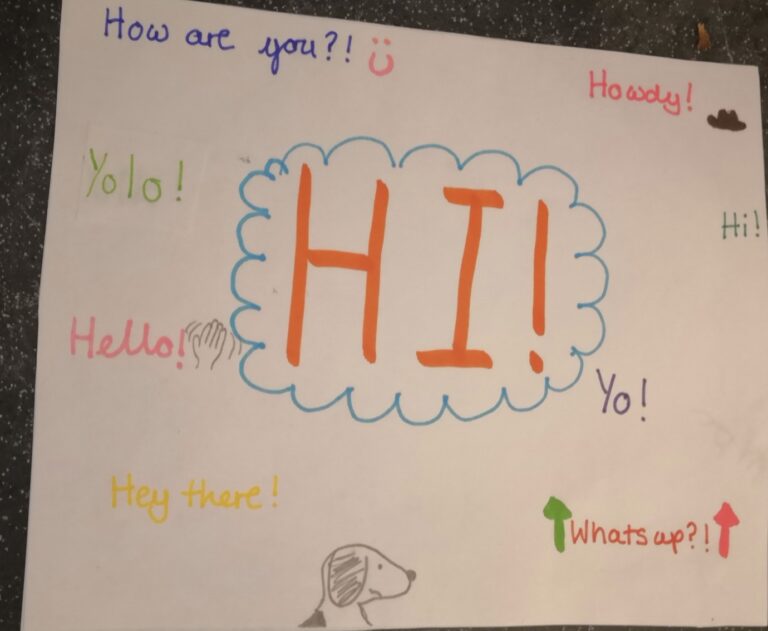 How are you?!
Howdy!
Yolo!
HI!
Hi!
Hello!
Yo!
Hey there!
Whats up?!